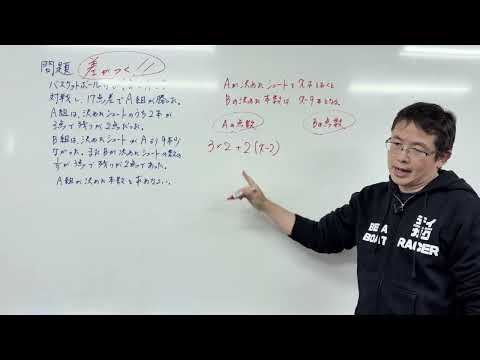 問題 差がつく!!
バスケットボールの
対戦し、17点差でA組が勝った。
A組は、決めたシュートのうち2本が
3点で残りが2点だった。
B組は、決めたシュートがAより9本少
なかった。またBが決めたシュートの数の
が3点で残りが2点であった。
A組が決めた本数を求めなさい。
Aが決めたシュートをx本とおくと
Bの決めた本数は x-9本となる。
Aの点数 Bの点数
3×2+2(x-2)
BOAT RACER